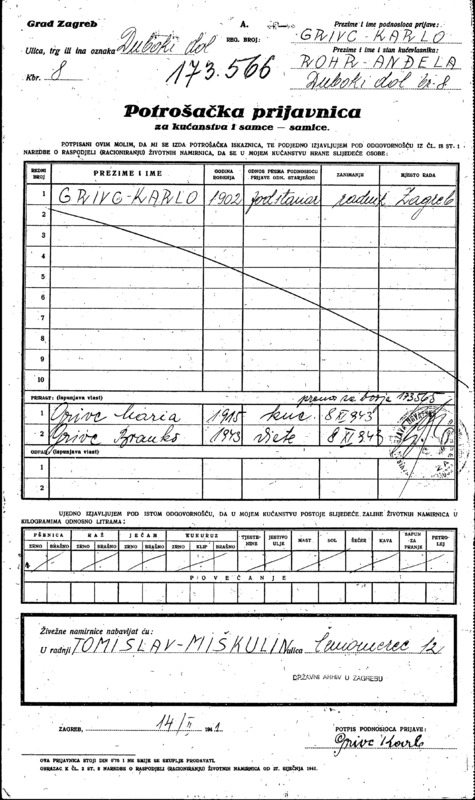 Grad Zagreb
A.
REG. BROJ:
Prezime i ime podnosioca prijave:
GRIVC-KARLO
Ulica, trg ili ina oznaka Duboki dol
Prezime i ime i stan kućevlasnika:
ROHR-ANĐELA
Kbr. 8
173.566
Duboki dol br. 8
Potrošačka prijavnica
za kućanstva i samce — samice.
POTPISANI OVIM MOLIM, DA MI SE IZDA POTROŠAČKA ISKAZNICA, TE POTJEDNO IZJAVLJUJEM POD ODGOVORNOŠĆU IZ ČL. 15 ST. 1
NAREDBE O RASPODJELI (RACIONIRANJU) ŽIVOTNIH NAMIRNICA, DA SE U MOJEM KUĆANSTVU HRANE SLIJEDEĆE OSOBE:
REDNI BROJ PREZIME I IME GODINA ROĐENJA ODNOS PREMA PODNOSIOCU PRIJAVE ODN. STARJEŠINI ZANIMANJE MJESTO RADA
1 GRIVC-KARLO 1902 podstanar radnik Zagreb
2
3
4
5
6
7
8
9
10
PRIRAST: (Ispunjava vlast) 173565
1 Grivc Maria 1915 kuć. 8 XI 943
2 Grivc Branko 1943 diete 8 XI 943
ODPAD (Ispunjava vlast)
1
2
UJEDNO IZJAVLJUJEM POD ISTOM ODGOVORNOŠĆU, DA U MOJEM KUĆANSTVU POSTOJE SLIJEDEĆE ZALIHE ŽIVOTNIH NAMIRNICA U
KILOGRAMIMA ODNOSNO LITRAMA:
PŠENICA RAŽ JEČAM KUKURUZ TJESTENINE JESTIVO ULJE MAST SOL ŠEĆER KAVA SAPUN ZA PRANJE PETROLEJ
ZRNO BRAŠNO ZRNO BRAŠNO ZRNO BRAŠNO ZRNO KLIP BRAŠNO
POVEĆANJE
Živežne namirnice nabavljat ću:
U radnji TOMISLAV-MIŠKULIN ulica Černomerec 12
DRŽAVNI ARHIV U ZAGREBU
ZAGREB, 14/II 1941
POTPIS PODNOSIOCA PRIJAVE:
Grivc Karlo
OVA PRIJAVNICA STOJI DIN 0'75 I NE SMIJE SE SKUPLJE PRODAVATI.
OBRAZAC K ČL. 2 ST. 2 NAREDBE O RASPODJELI (RACIONIRANJU) ŽIVOTNIH NAMIRNICA OD 27. SIJEČNJA 1941.